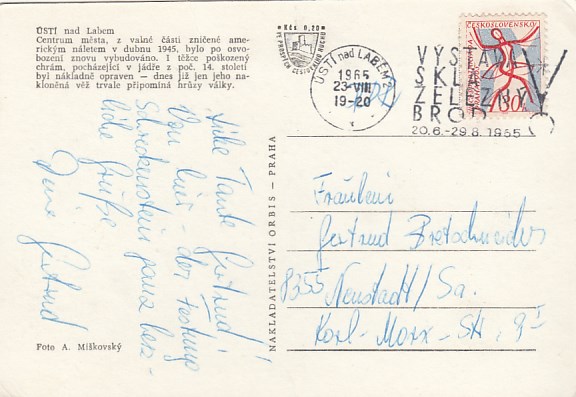 ÚSTÍ nad Labem
Centrum města, z valné části zničené ame-
rickým náletem v dubnu 1945, bylo po osvo-
bození znovu vybudováno. I těžce poškozený
chrám, pocházející v jádře z poč. 14. století
byl nákladně opraven — dnes již jen jeho na-
kloněná věž trvale připomíná hrůzy války.
Liebe Tante Gertrud!
Von hier - der Festung
Schreckenstein ganz herz-
liche Grüße
Deine Gertrud
Foto A. Miškovský
NAKLADATELSTVÍ ORBIS - PRAHA
Kčs 0,20
VE PROSPĚCH
ÚSTÍ nad LABEM 2
1965
23.VIII.
19-20
VÝSTAVA
SKLA
ŽELEZNÝ
BROD
20.6.-29.8.1965
ČESKOSLOVENSKO
30h
Fräulein
Gertrud Bretschneider
8355 Neustadt/Sa.
Karl-Marx-Str.